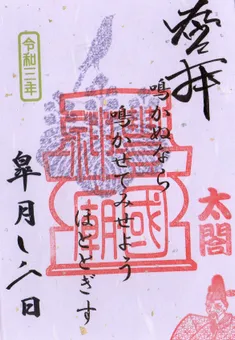 拝
鳴かぬなら
鳴かせてみせよう
ほととぎす
太閤
令和三年
皐月 八日